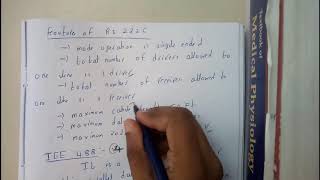 Feature of RS 232C
→ mode operation is single ended
→ total number of drivers allowed to
one line is 1 driver
→ total number of receiver allowed to
one line is 1 receiver
→ maximum cable
→ maximum
→ maximum
IEE 488:-
It is a
Textbook of
Medical Physiology